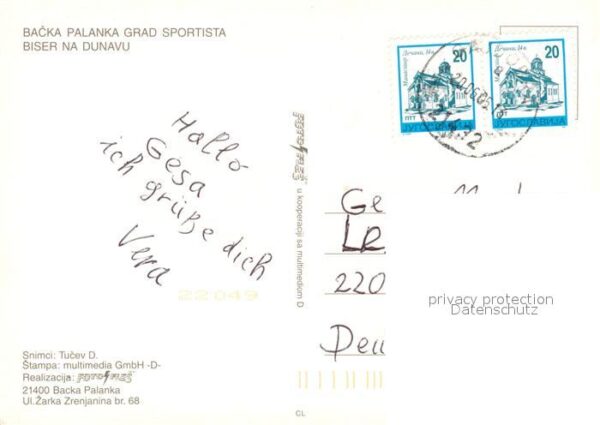 BAČKA PALANKA GRAD SPORTISTA
BISER NA DUNAVU
Hallo
Gesa
ich grüße dich
Vera
22049
Snimci: Tučev D.
Štampa: multimedia GmbH -D-
Realizacija: FOTO FLEŠ
21400 Backa Palanka
Ul.Žarka Zrenjanina br. 68
FOTO FLEŠ u kooperaciji sa multimediom D
CL
20
20
ПТТ
ПТТ
ЈУГОСЛАВИЈА
ЈУГОСЛАВИЈА
Ge
LR
220
Deu
privacy protection
Datenschutz